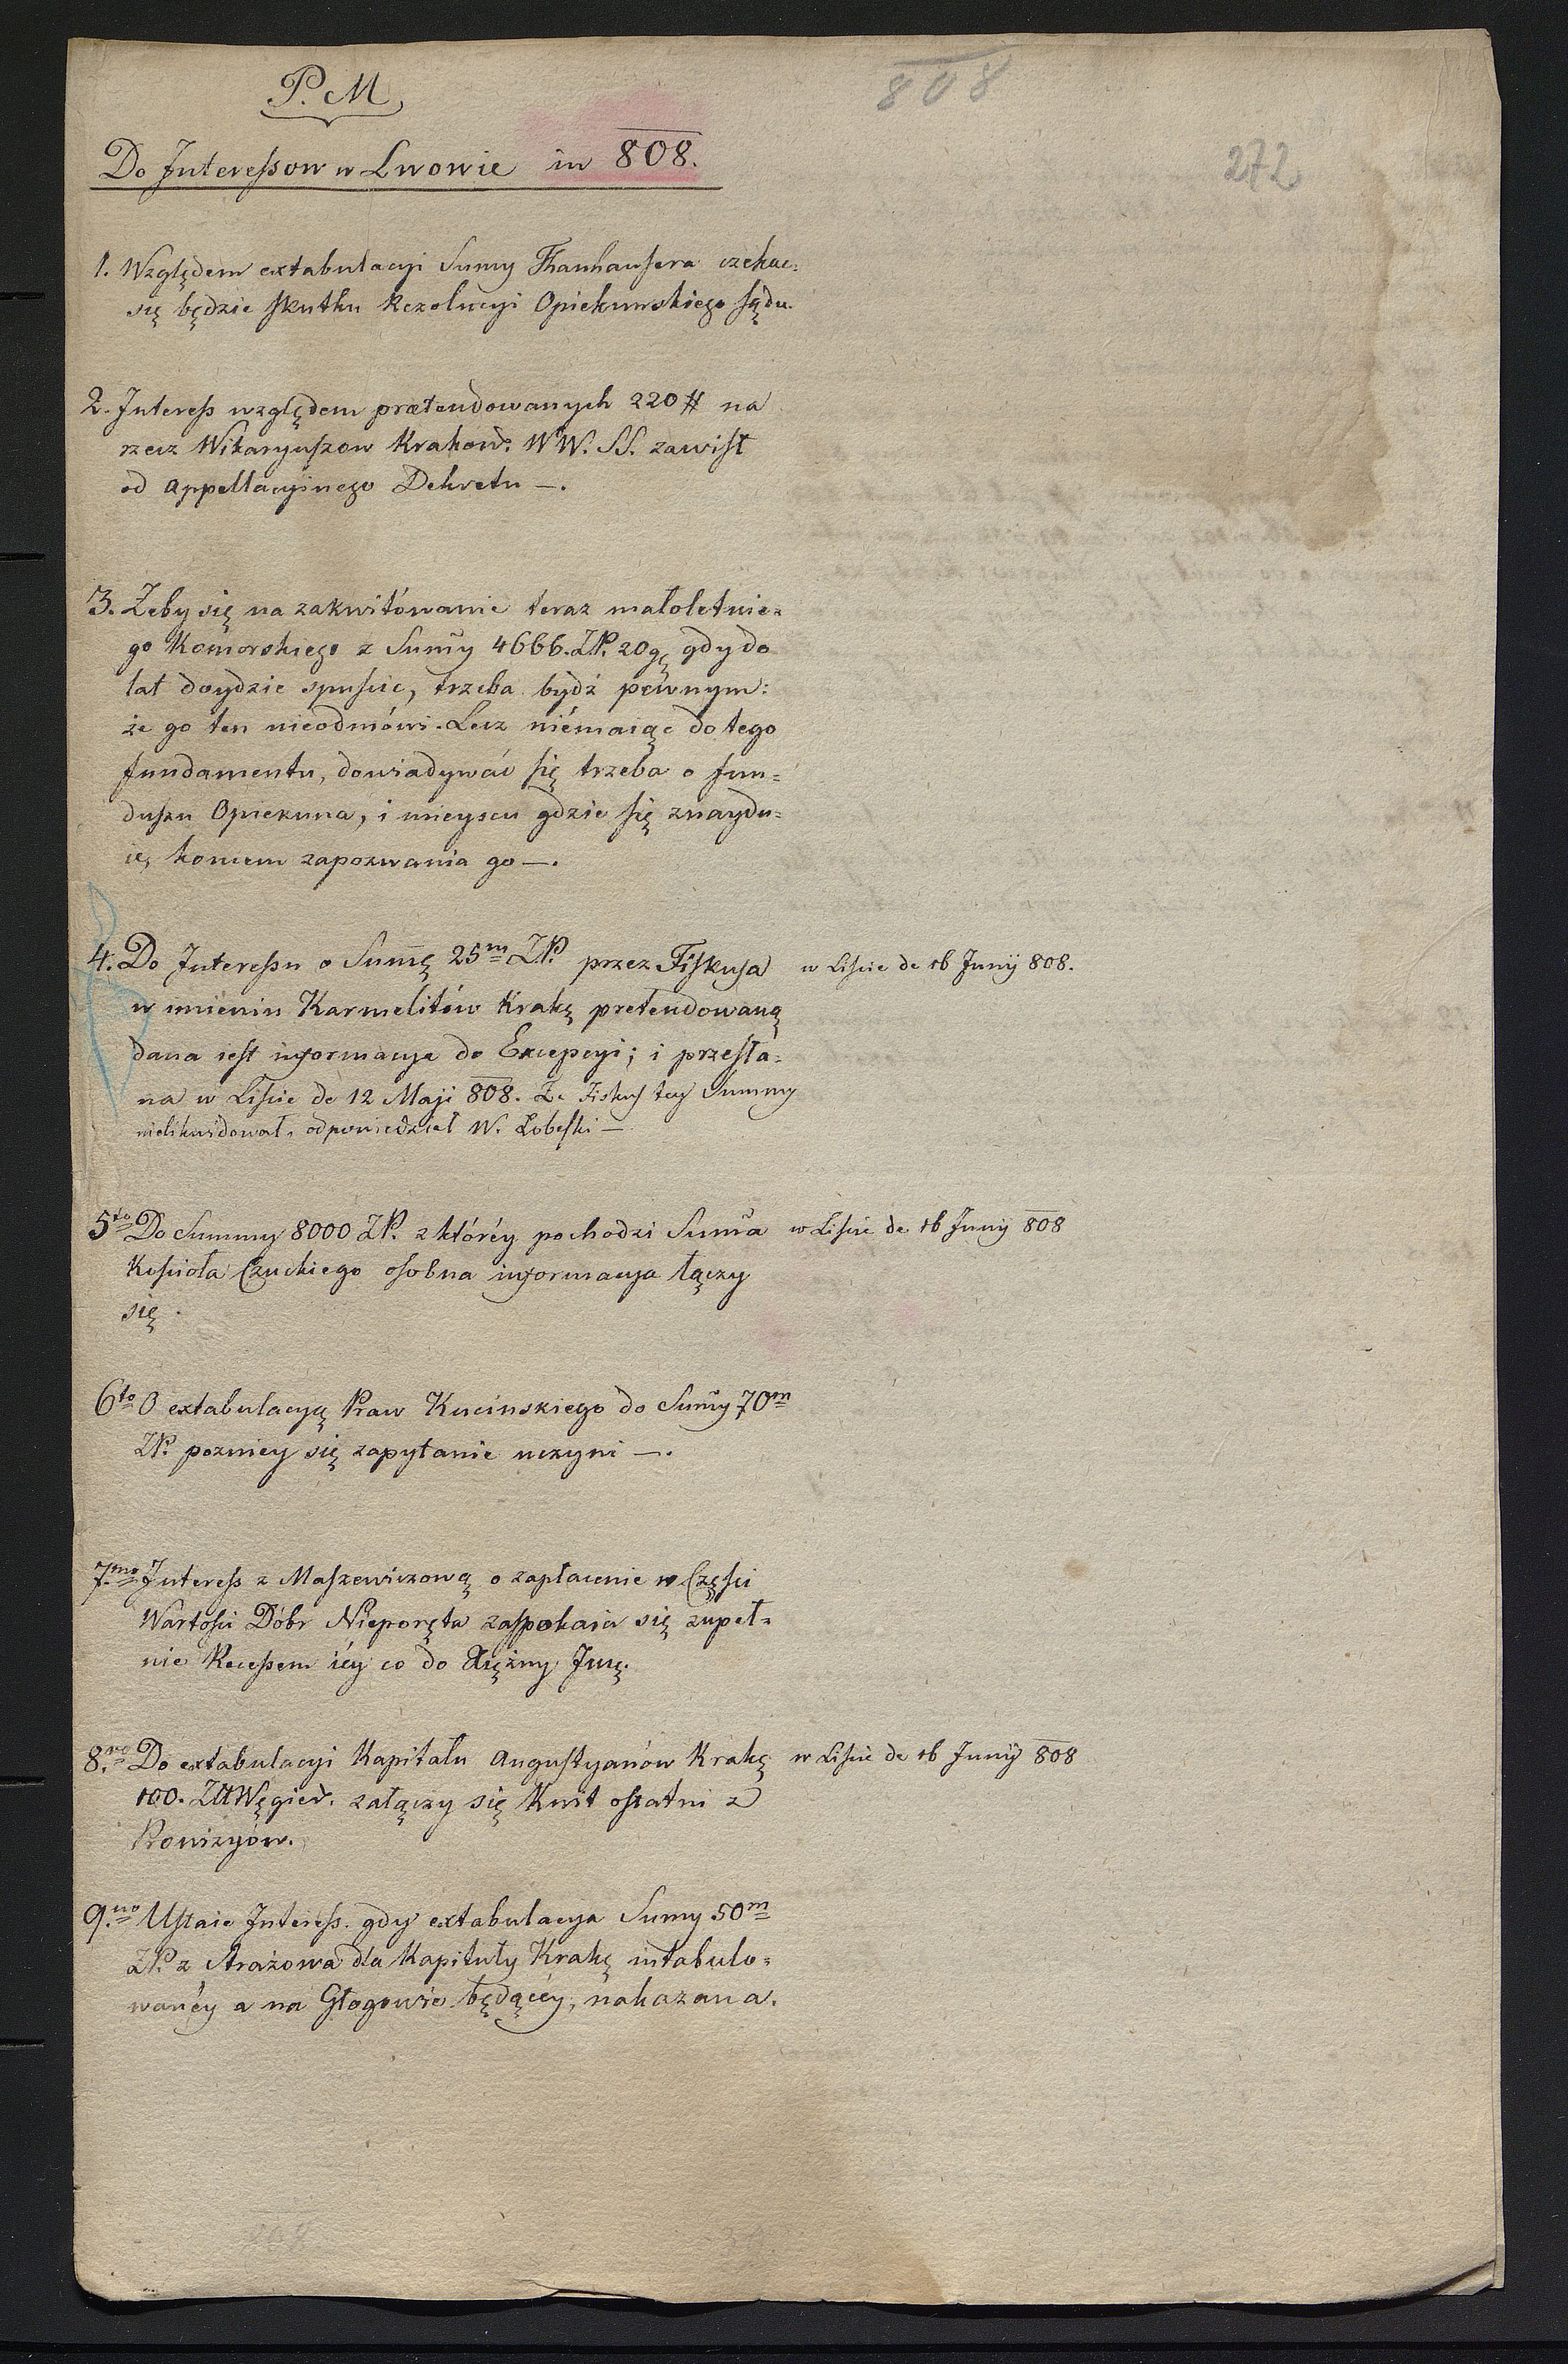 P. M.
808
272
Do Interessow w Lwowie in 808.
1. Względem extabulacyi Sumy Thanhausera czekac
się będzie skutku Rezolucyi Opiekunskiego sądu.
2. Interess względem prætendowanych 220 # na
rzecz Wikaryuszow Krakow: WW. SS. zawisł
od appellacyinego Dekretu —.
3. Żeby się na zakwitówanie teraz małoletnie=
go Komorskiego z Sum̃y 4666. ZP. 20 g, gdy do
lat doydzie spuścic, trzeba bydź pewnym:
że go ten nieodmówi. Lecz niémaiąc do tego
fundamentu, dowiadywać się trzeba o fun=
duszu Opiekuna, i mieyscu gdzie się znaydu=
ie, koncem zapozwania go —.
4. Do Interessu o Sum̃ę 25m ZP. przez Fiskusa w Liście de 16 Junij 808.
w imieniu Karmelitów Krakę pretendowaną
dana iest informacya do Excepcyi; i przesła=
na w Liście de 12 Maji 808. Że Fiskus tey Summy
nielikwidował, odpowiedział W. Łobeski —
5to Do Summy 8000 ZP. z któréy pochodzi Sum̃a w Liście de 16 Junij 808
Kościoła Czuckiego osobna informacya łączy
się.
6to O extabulacyą Praw Kucinskiego do Sum̃y 70m
ZP. pozniey się zapytanie uczyni —.
7mo Interess z Maszewiczową o zapłacenie w Części
Wartości Dóbr Nieporęta zaspokaia się zupeł=
nie Recessem iéy co do Xiężny Jmę.
8vo Do extabulacyi Kapitału Augustyanów Krakę w Liście de 16 Junij 808
100. Złł Węgier. załączy się Kwit ostatni z
Prowizyów.
9no Ustaie Interess. gdy extabulacya Sumy 50m
ZP. z Strażowa dla Kapituły Krakę intabulo=
wanéy a na Głogowie będącéy, nakazana.